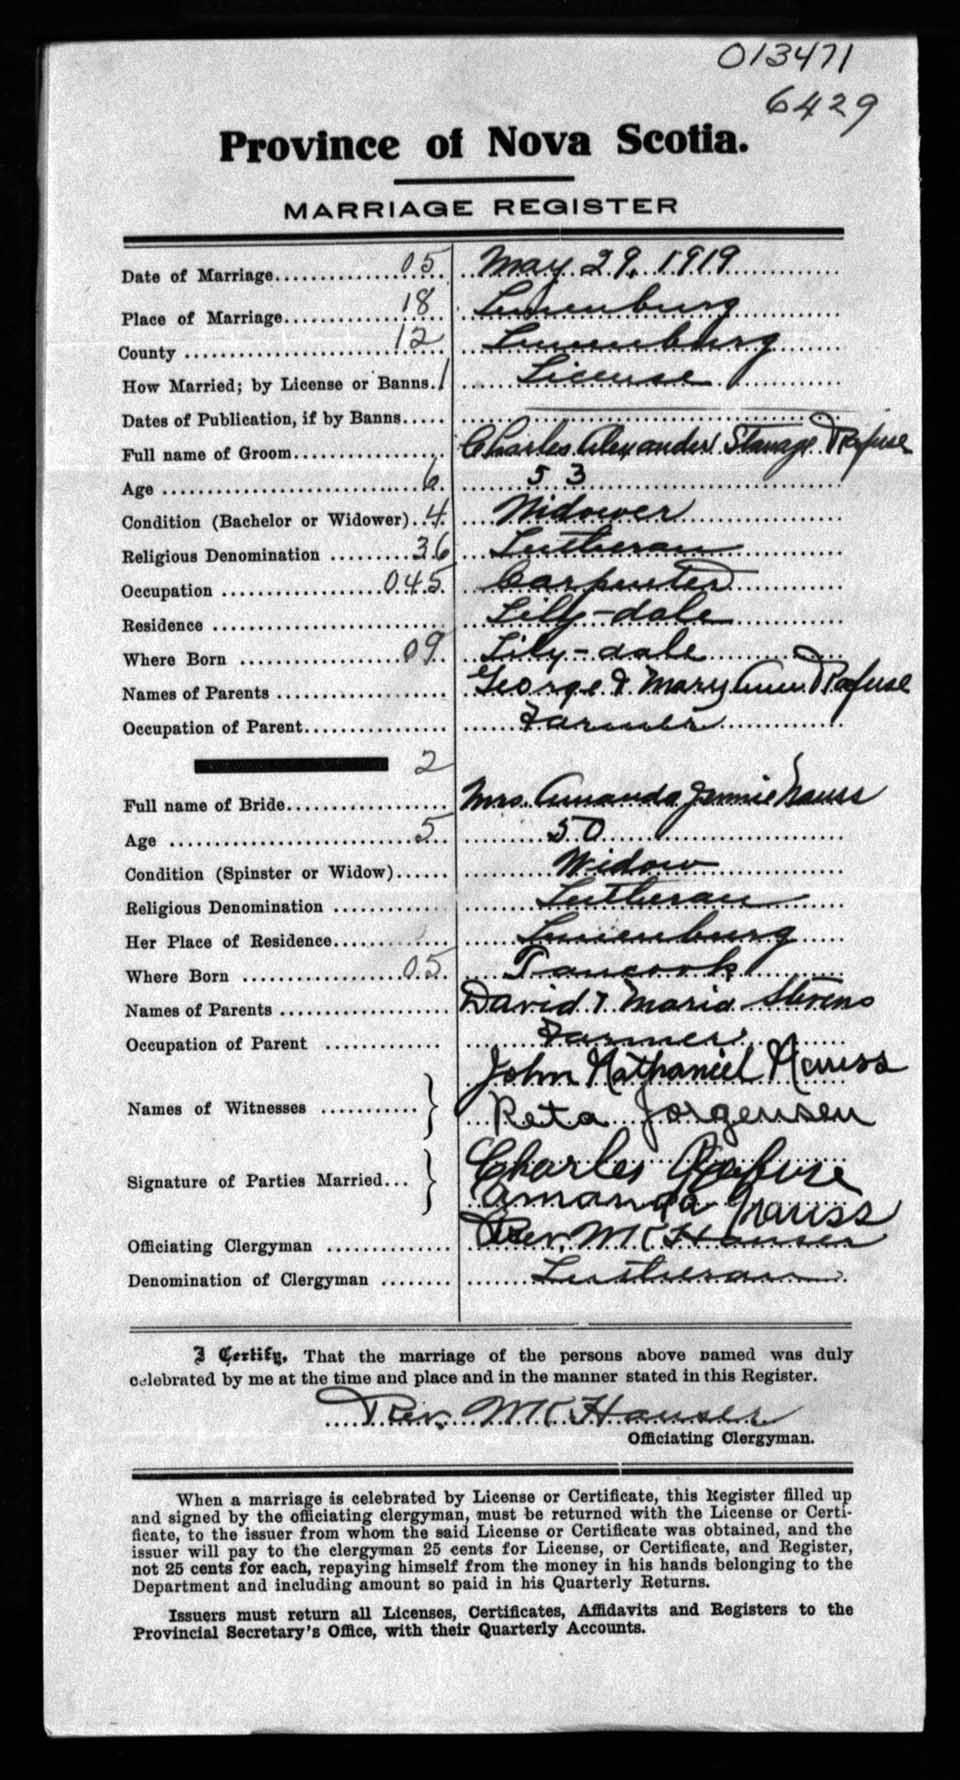 013471
6429
Province of Nova Scotia.
MARRIAGE REGISTER
Date of Marriage 05 May 29, 1919
Place of Marriage 18 Lunenburg
County 12 Lunenburg
How Married; by License or Banns. 1 License
Dates of Publication, if by Banns
Full name of Groom Charles Alexander Refuse
Age 6 53
Condition (Bachelor or Widower) 4 Widower
Religious Denomination 36 Lutheran
Occupation 045 Carpenter
Residence Lilly-dale
Where Born 09 Lily-dale
Names of Parents George & Mary Ann Rafuse
Occupation of Parent Farmer
2
Full name of Bride Mrs. Amanda Jennie Nauss
Age 5 50
Condition (Spinster or Widow) Widow
Religious Denomination Lutheran
Her Place of Residence Lunenburg
Where Born 05 Tancook
Names of Parents David & Maria Stevens
Occupation of Parent Farmer
John Nathaniel Nauss
Names of Witnesses }
Reta Jorgensen
Charles Rafuse
Signature of Parties Married }
Amanda Nauss
Officiating Clergyman Rev. M K Hauser
Denomination of Clergyman Lutheran
I Certify, That the marriage of the persons above named was duly
celebrated by me at the time and place and in the manner stated in this Register.
Rev. M K Hauser
Officiating Clergyman.
When a marriage is celebrated by License or Certificate, this Register filled up
and signed by the officiating clergyman, must be returned with the License or Certi-
ficate, to the issuer from whom the said License or Certificate was obtained, and the
issuer will pay to the clergyman 25 cents for License, or Certificate, and Register,
not 25 cents for each, repaying himself from the money in his hands belonging to the
Department and including amount so paid in his Quarterly Returns.
Issuers must return all Licenses, Certificates, Affidavits and Registers to the
Provincial Secretary's Office, with their Quarterly Accounts.